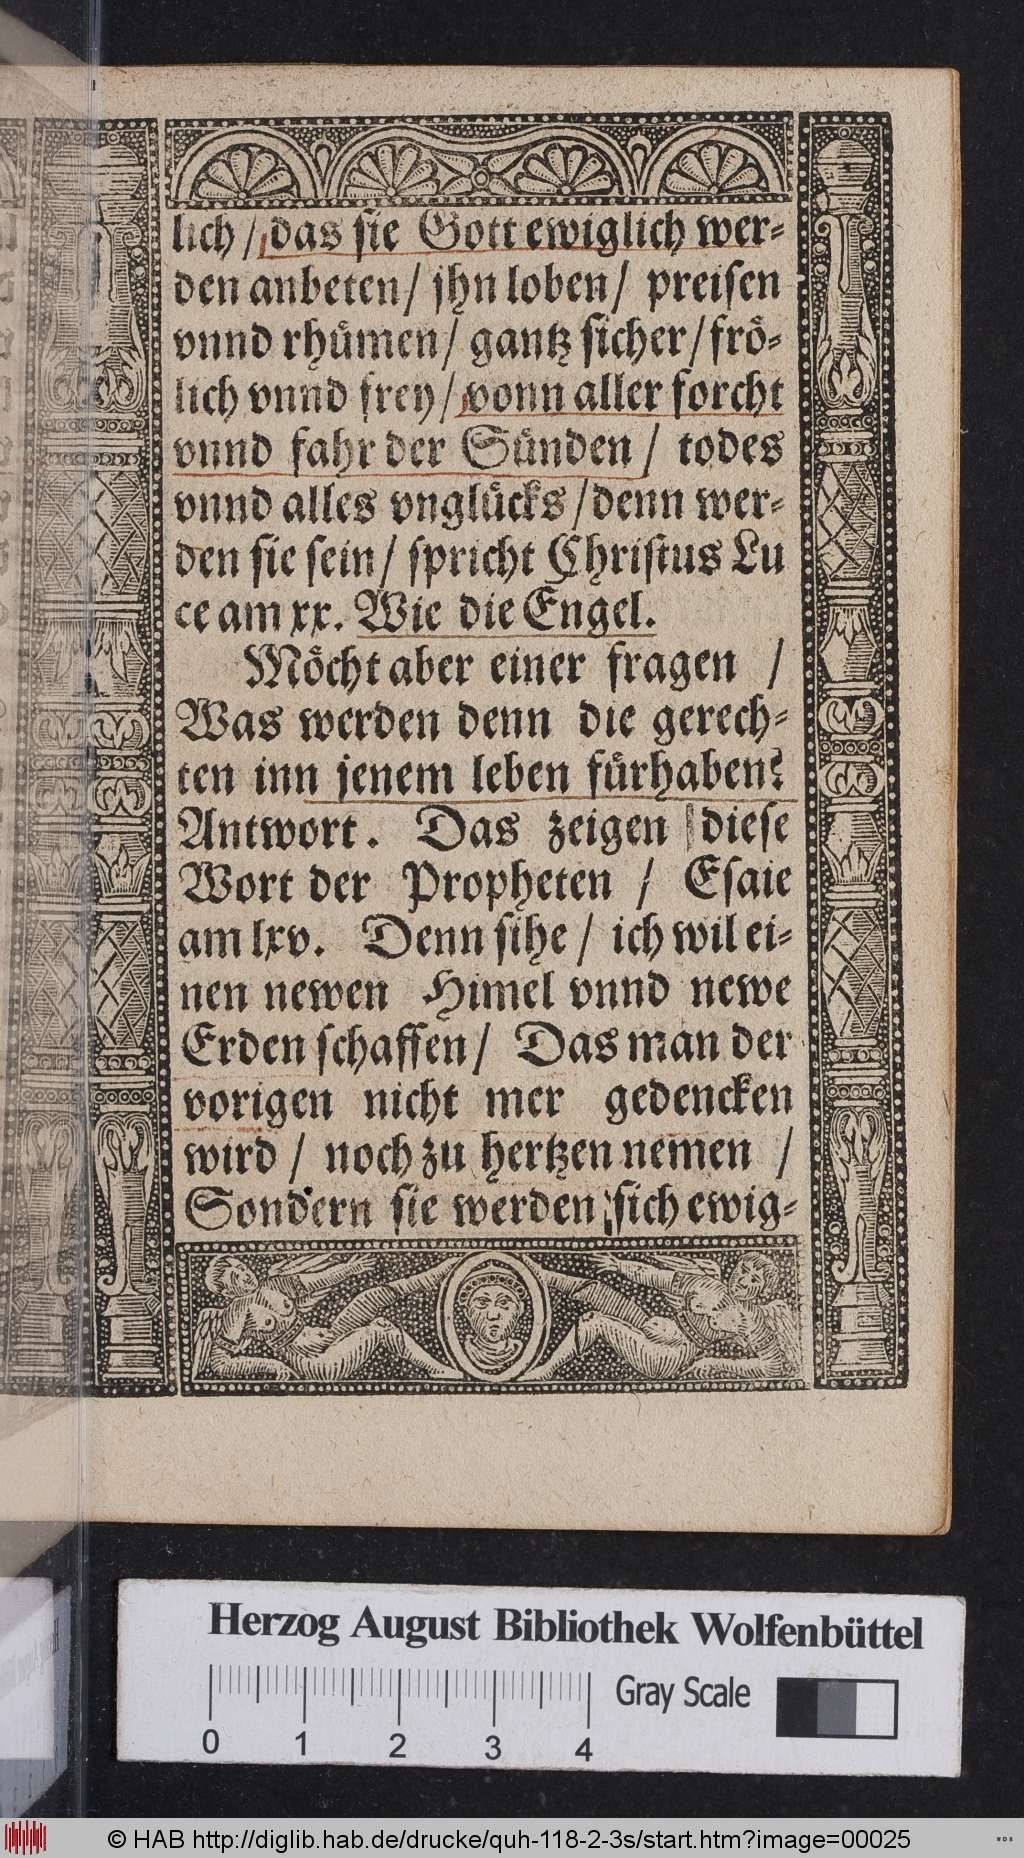 lich / das sie Gott ewiglich wer-
den anbeten / jhn loben / preisen
vnnd rhuͤmen / gantz sicher / froͤ-
lich vnnd frey / vonn aller forcht
vnnd fahr der Suͤnden / todes
vnnd alles vngluͤcks / denn wer-
den sie sein / spricht Christus Lu
ce am xx. Wie die Engel.
Moͤcht aber einer fragen /
Was werden denn die gerech-
ten inn jenem leben fuͤrhaben?
Antwort. Das zeigen diese
Wort der Propheten / Esaie
am lxv. Denn sihe / ich wil ei-
nen newen Himel vnnd newe
Erden schaffen / Das man der
vorigen nicht mer gedencken
wird / noch zu hertzen nemen /
Sondern sie werden sich ewig-
Herzog August Bibliothek Wolfenbüttel
Gray Scale
0 1 2 3 4
© HAB http://diglib.hab.de/drucke/quh-118-2-3s/start.htm?image=00025